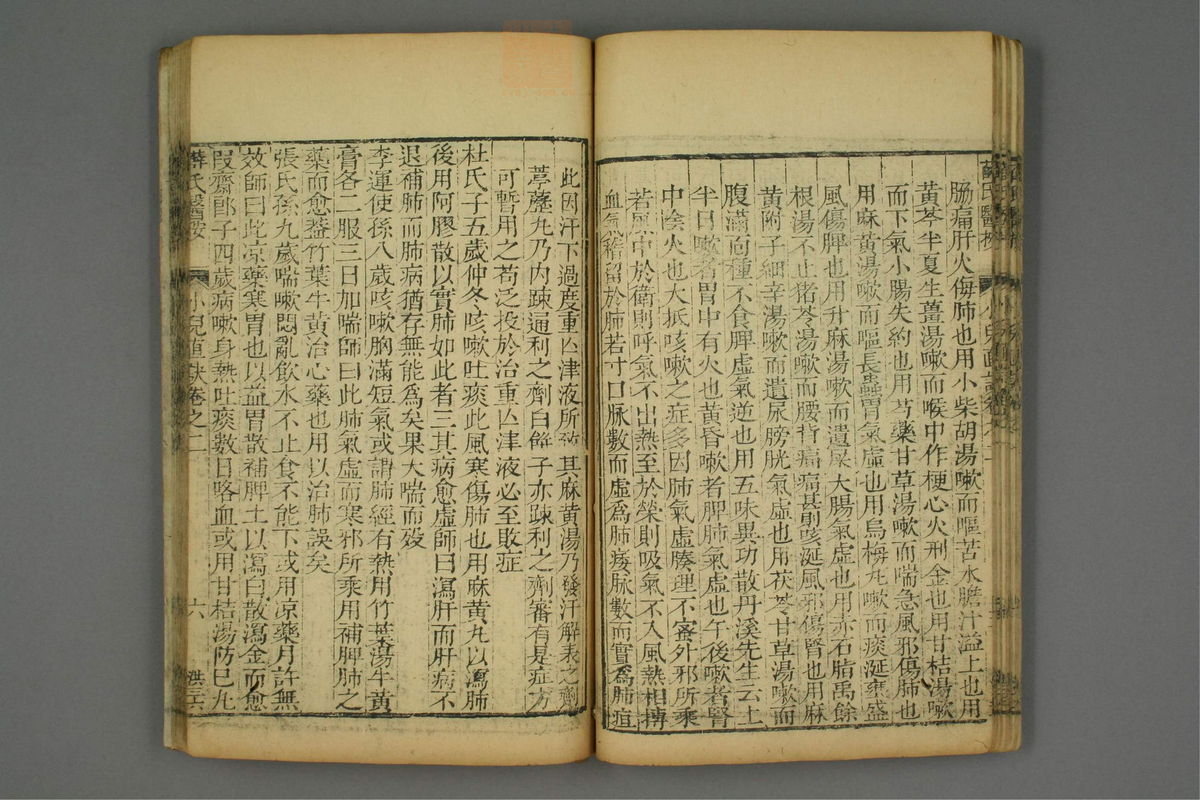 薛氏醫按 小兒直訣卷之二
腸痛肝火侮肺也用小柴胡湯嗽而嘔苦水膽汁溢上也用
黃芩半夏生薑湯嗽而喉中作梗心火刑金也用甘桔湯嗽
而下氣小腸失約也用芍藥甘草湯嗽而喘急風邪傷肺也
用麻黃湯嗽而嘔長蟲胃氣虛也用烏梅丸嗽而痰涎壅盛
風傷脾也用升麻湯嗽而遺屎大腸氣虛也用赤石脂禹餘
根湯不止猪苓湯嗽而腰背痛痛甚則咳涎風邪傷腎也用麻
黃附子細辛湯嗽而遺尿膀胱氣虛也用茯苓甘草湯嗽而
腹滿面種不食脾虛氣逆也用五味異功散丹溪先生云上
半日嗽者胃中有火也黃昏嗽者脾肺氣虛也午後嗽者腎
中陰火也大抵咳嗽之症多因肺氣虛腠理不密外邪所乘
若風中於衛則呼氣不出熱至於榮則吸氣不入風熱相搏
血氣稽留於肺若寸口脉數而虛為肺痿脉數而實為肺疽
此因汗下過度重亾津液所致其麻黃湯乃發汗解表之劑
葶藶丸乃内踈通利之劑白餅子亦踈利之劑審有是症方
可暫用之苟泛投於治重亾津液必至敗症
杜氏子五歲仲冬咳嗽吐痰此風寒傷肺也用麻黃丸以瀉肺
後用阿膠散以實肺如此者三其病愈虛師曰瀉肝而肝病不
退補肺而肺病猶存無能為矣果大喘而歿
李運使孫八歲咳嗽胸滿短氣或謂肺經有熱用竹葉湯牛黃
膏各二服三日加喘師曰此肺氣虛而寒邪所乘用補脾肺之
藥而愈葢竹葉牛黃治心藥也用以治肺誤矣
張氏孫九歲喘嗽悶亂飲水不止食不能下或用凉藥月許無
效師曰此凉藥寒胃也以益胃散補脾土以瀉白散瀉金而愈
段齋郎子四歲病嗽身熱吐痰數日咯血或用甘桔湯防巳丸
薛氏醫按 小兒直訣卷之二 六 洪三